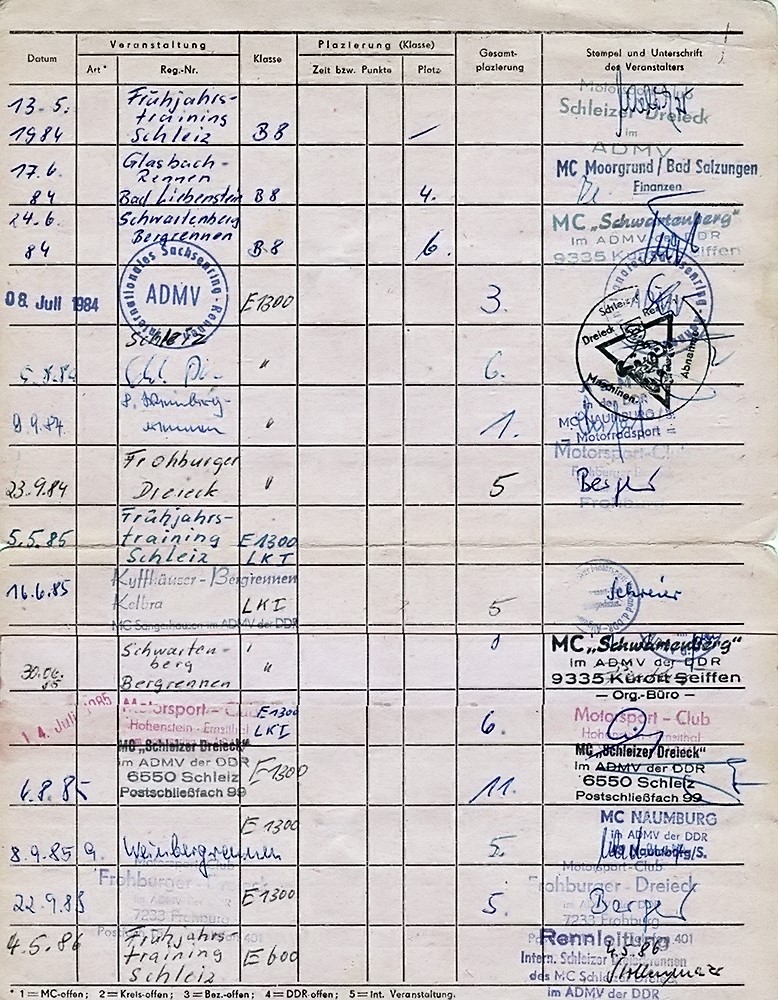 Datum
Veranstaltung
Art*
Reg.-Nr.
Klasse
Plazierung (Klasse)
Zeit bzw. Punkte
Platz
Gesamt-
plazierung
Stempel und Unterschrift
des Veranstalters
13. 5.
1984
Frühjahrs-
training
Schleiz
B 8
—
Schleizer Dreieck
im
ADMV
17. 6.
84
Glasbach-
Rennen
Bad Liebenstein
B 8
4.
MC Moorgrund / Bad Salzungen
Finanzen
24. 6.
84
Schwartenberg
Bergrennen
B 8
6.
MC „Schwartenberg"
im ADMV der DDR
9335 Kurort Seiffen
08. Juli 1984
Internationales Sachsenring-Rennen
ADMV
E 1300
3.
Schleiz
"
6.
Schleizer
Dreieck
Rennen
Maschinen
Abnahme
9.9.84
"
1.
MC NAUMBURG/S.
Motorradsport
23.9.84
Frohburger
Dreieck
"
5
Motorsport-Club
Berger
5.5.85
Frühjahrs-
training
Schleiz
E 1300
LK I
16.6.85
Kyffhäuser - Bergrennen
Kelbra
MC Sangerhausen im ADMV der DDR
LKI
5
Schreier
30.06.
85
Schwarten-
berg
Bergrennen
"
MC „Schwartenberg"
im ADMV der DDR
9335 Kurort Seiffen
— Org.-Büro —
14. Juli 1985
Motorsport - Club
Hohenstein - Ernstthal
E 1300
LKI
6.
Motorsport - Club
Hohenstein - Ernstthal
MC „Schleizer Dreieck"
im ADMV der DDR
6550 Schleiz
Postschließfach 99
E 1300
11.
MC „Schleizer Dreieck"
im ADMV der DDR
6550 Schleiz
Postschließfach 99
8.9.85
9.
Weinbergrennen
E 1300
5.
MC NAUMBURG
im ADMV der DDR
Naumburg/S.
22.9.85
Frohburger - Dreieck
7233 Frohburg
E 1300
5.
Motorsport-Club
Frohburger - Dreieck
7233 Frohburg
Berger
4.5.86
Frühjahrs-
training
Schleiz
E 600
Rennleitung
4.5.86
Intern. Schleizer Dreieckrennen
des MC Schleizer Dreieck
im ADMV der DDR
* 1 = MC-offen; 2 = Kreis-offen; 3 = Bez.-offen; 4 = DDR-offen; 5 = Int. Veranstaltung.